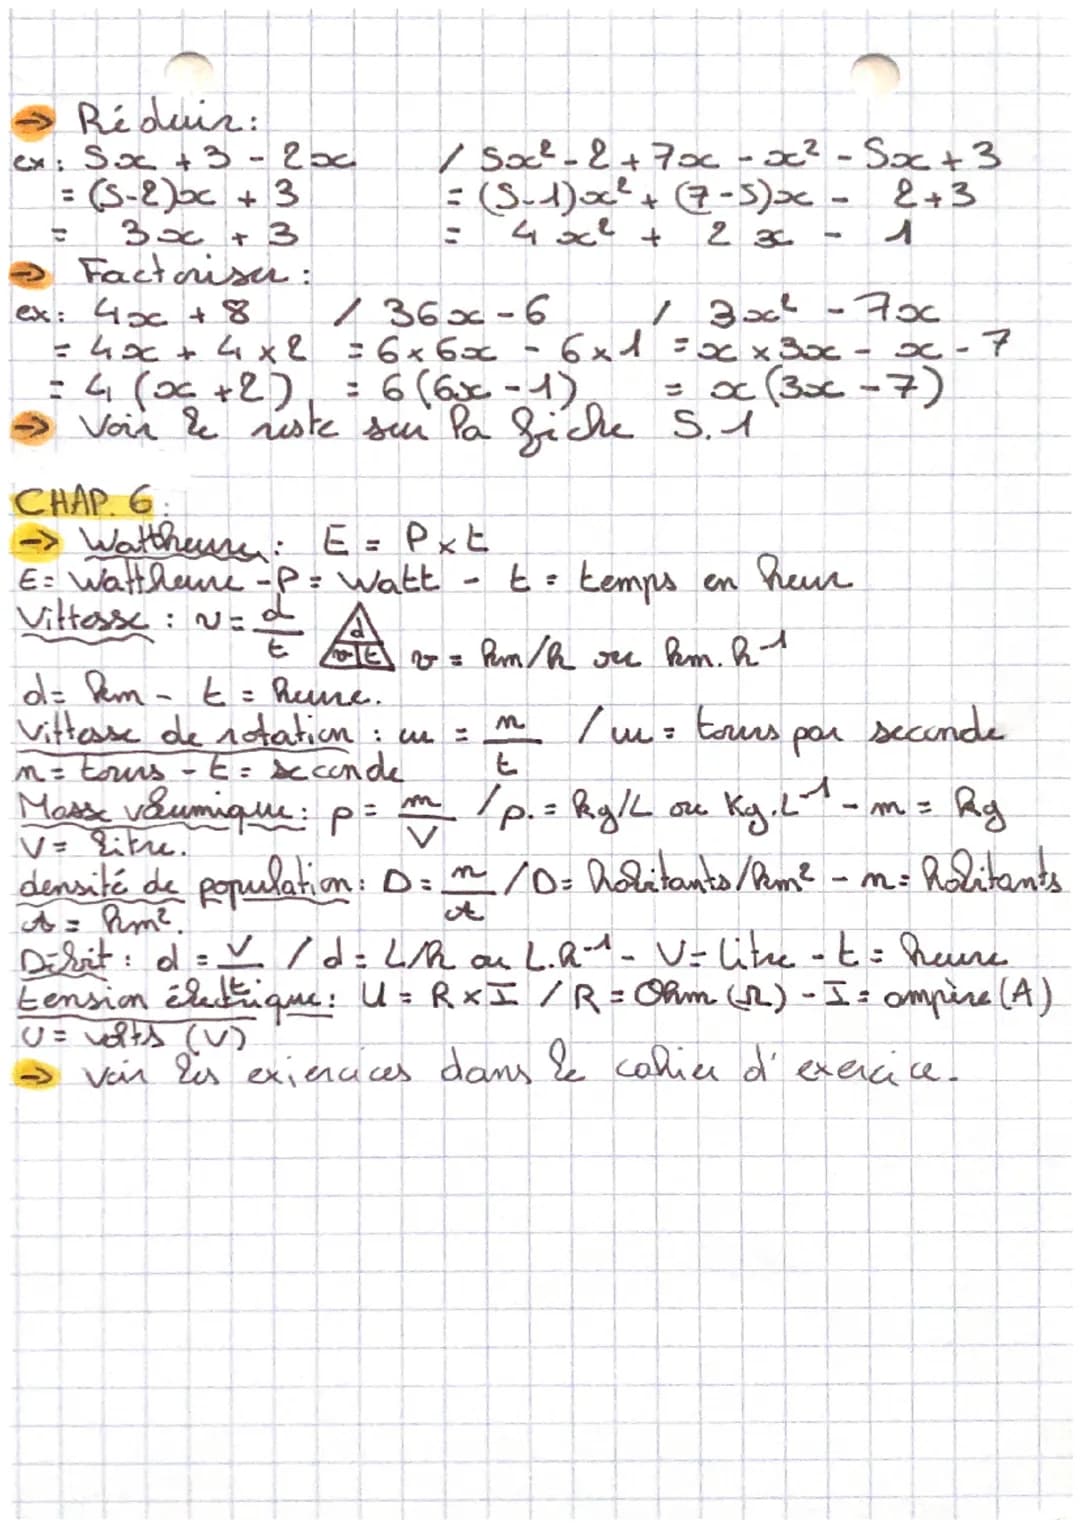 → Réduir:
ex: 5x + 3 - 2x / 5x² - 2 + 7x - x² - 5x + 3
= (5-2)x + 3 = (5-1)x² + (7-5)x - 2+3
= 3x + 3 = 4x² + 2x - 1
→ Factoriser:
ex: 4x + 8 / 36x - 6 / 3x² - 7x
= 4x + 4 × 2 = 6×6x - 6×1 = x × 3x - x - 7
= 4(x+2) = 6(6x-1) = x(3x-7)
→ Voir le reste sur la fiche 5.1
CHAP. 6:
→ Wattheure: E = P×t
E= Wattheure - P= Watt - t= temps en heur
Vittesse: v = d/t d v t v = km/h ou km.h⁻¹
d= km - t = heure.
Vittesse de rotation: m = n/t / m = tours par seconde
n= tours - t= seconde
Masse volumique: p = m/V / p.= kg/L ou Kg.L⁻¹ - m = kg
V= litre.
densité de population: D= n/A / D= habitants/km² - n= habitants
A= km².
Débit: d = V/t / d= L/h ou L.h⁻¹ - V= litre - t= heure
tension électrique: U = R×I / R = Ohm (Ω) - I= ampère (A)
U= volts (V)
→ voir les exiercices dans le cahier d'exercice.